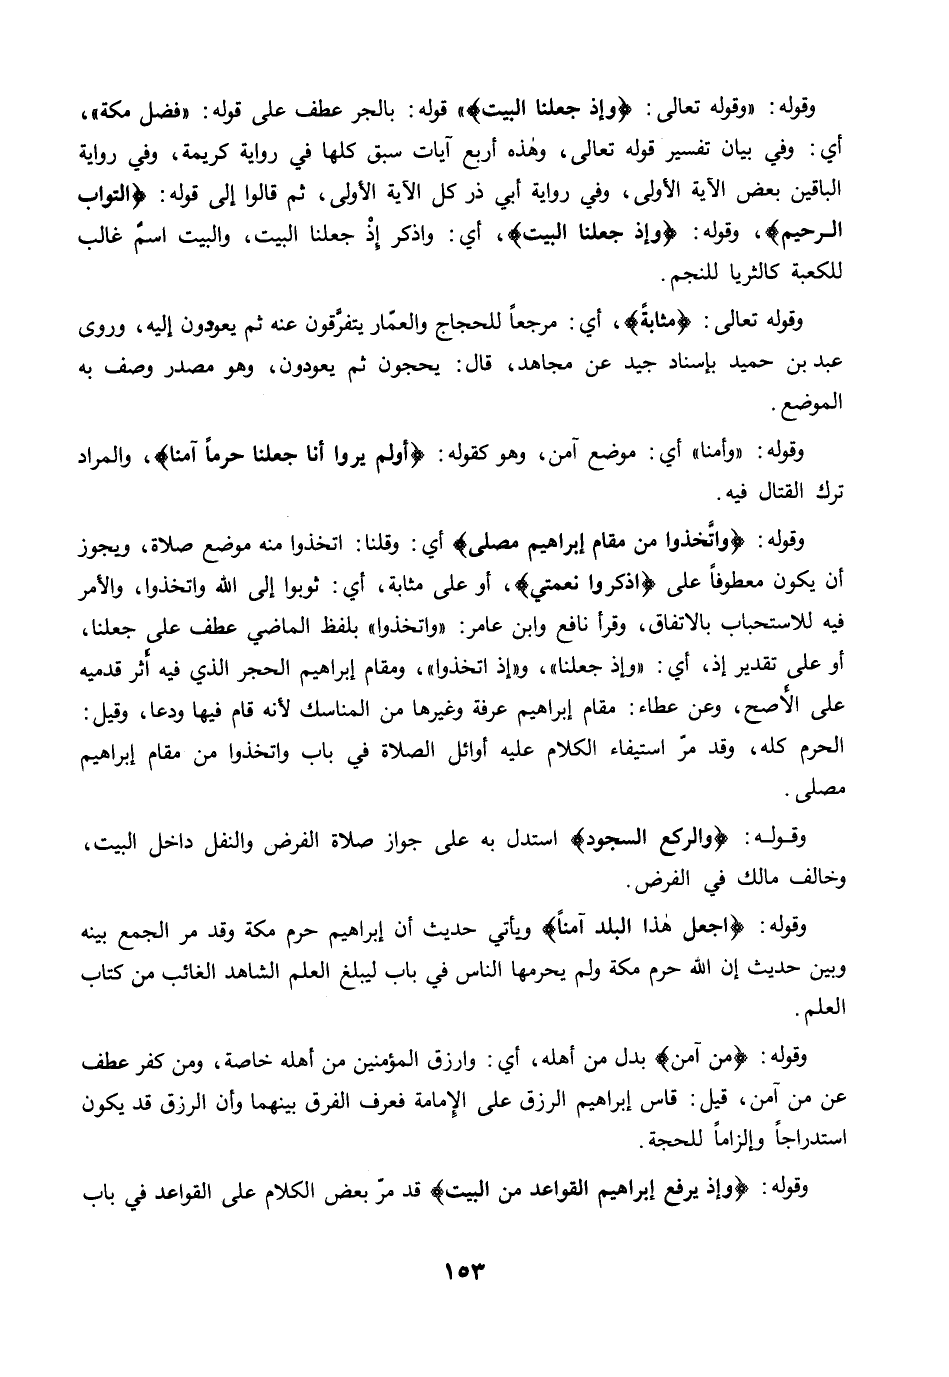 وقوله: «وقوله تعالى: ﴿وإذ جعلنا البيت﴾» قوله: بالجر عطف على قوله: «فضل مكة»،
أي: وفي بيان تفسير قوله تعالى، وهٰذه أربع آيات سبق كلها في رواية كريمة، وفي رواية
الباقين بعض الآية الأولى، وفي رواية أبي ذر كل الآية الأولى، ثم قالوا إلى قوله: ﴿التواب
الـرحيم﴾، وقوله: ﴿وإذ جعلنا البيت﴾، أي: واذكر إذْ جعلنا البيت، والبيت اسمٌ غالب
للكعبة كالثريا للنجم.
وقوله تعالى: ﴿مثابةً﴾، أي: مرجعاً للحجاج والعمّار يتفرَّقون عنه ثم يعودون إليه، وروى
عبد بن حميد بإسناد جيد عن مجاهد، قال: يحجون ثم يعودون، وهو مصدر وصف به
الموضع.
وقوله: «وأمنا» أي: موضع آمن، وهو كقوله: ﴿أولم يروا أنا جعلنا حرماً آمنا﴾، والمراد
ترك القتال فيه.
وقوله: ﴿واتَّخذوا من مقام إبراهيم مصلى﴾ أي: وقلنا: اتخذوا منه موضع صلاة، ويجوز
أن يكون معطوفاً على ﴿اذكروا نعمتي﴾، أو على مثابة، أي: ثوبوا إلى الله واتخذوا، والأمر
فيه للاستحباب بالاتفاق، وقرأ نافع وابن عامر: «واتخذوا» بلفظ الماضي عطف على جعلنا،
أو على تقدير إذ، أي: «وإذ جعلنا»، و«إذ اتخذوا»، ومقام إبراهيم الحجر الذي فيه أثر قدميه
على الأصح، وعن عطاء: مقام إبراهيم عرفة وغيرها من المناسك لأنه قام فيها ودعا، وقيل:
الحرم كله، وقد مرّ استيفاء الكلام عليه أوائل الصلاة في باب واتخذوا من مقام إبراهيم
مصلى.
وقـولـه: ﴿والركع السجود﴾ استدل به على جواز صلاة الفرض والنفل داخل البيت،
وخالف مالك في الفرض.
وقوله: ﴿اجعل هٰذا البلد آمناً﴾ ويأتي حديث أن إبراهيم حرم مكة وقد مر الجمع بينه
وبين حديث إن الله حرم مكة ولم يحرمها الناس في باب ليبلغ العلم الشاهد الغائب من كتاب
العلم.
وقوله: ﴿من آمن﴾ بدل من أهله، أي: وارزق المؤمنين من أهله خاصة، ومن كفر عطف
عن من آمن، قيل: قاس إبراهيم الرزق على الإمامة فعرف الفرق بينهما وأن الرزق قد يكون
استدراجاً وإلزاماً للحجة.
وقوله: ﴿وإذ يرفع إبراهيم القواعد من البيت﴾ قد مرّ بعض الكلام على القواعد في باب
١٥٣